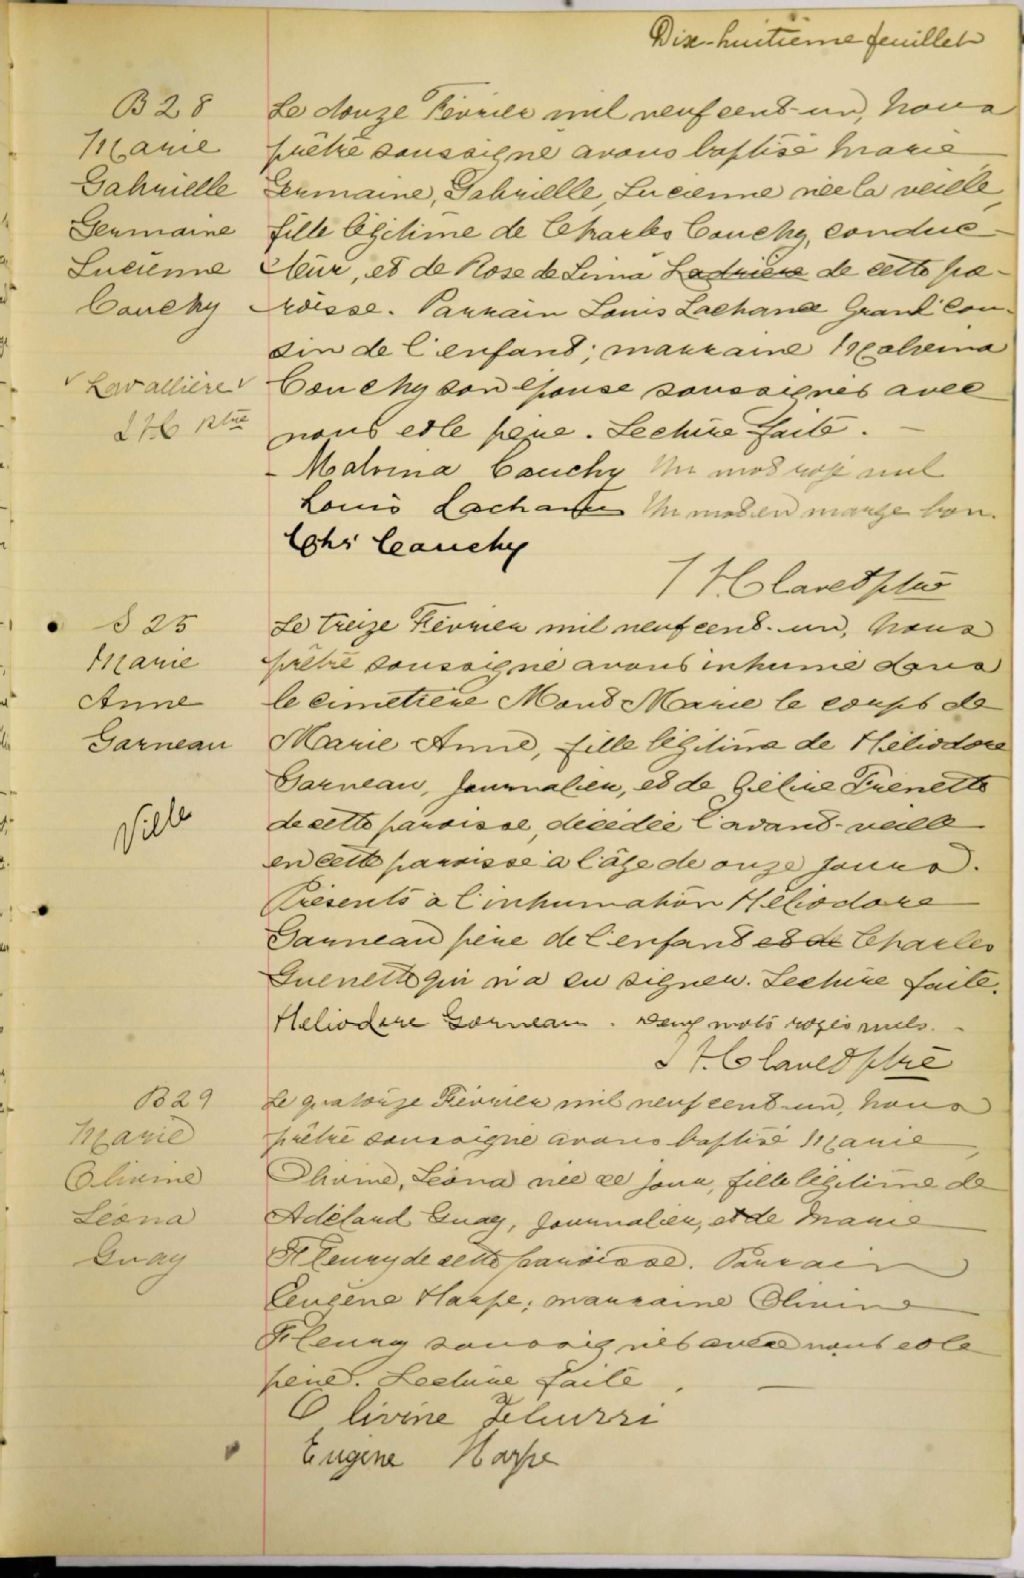 Dix-huitième feuillet
B 28
Marie
Gabrielle
Germaine
Lucienne
Couchy
√ Lavallière √
J H C Ptre
Le douze Février mil neuf cent-un, nous
prêtre soussigné avons baptisé Marie,
Germaine, Gabrielle, Lucienne née la veille,
fille légitime de Charles Couchy, conduc-
teur, et de Rose de Lima Ladrière de cette pa-
roisse. Parrain Louis Lachance Grand'cou-
sin de l'enfant; marraine Malvina
Couchy son épouse soussignés avec
nous et le père. Lecture faite. —
- Malvina Couchy Un mot rayé nul
Louis Lachance Un mot en marge bon.
Chs Couchy
J H Clavet ptre
S 25
Marie
Anne
Garneau
Ville
Le treize Février mil neuf cent-un, nous
prêtre soussigné avons inhumé dans
le cimetière Mont Marie le corps de
Marie Anne, fille légitime de Héliodore
Garneau, journalier, et de Céline Frenette
de cette paroisse, décédée l'avant-veille
en cette paroisse à l'âge de onze jours.
Présents à l'inhumation Héliodore
Garneau père de l'enfant et de Charles
Guenette qui n'a su signer. Lecture faite.
Heliodore Garneau. Deux mots rayés nuls. -
J H Clavet ptre
B 29
Marie
Olivine
Léona
Guay
Le quatorze Février mil neuf cent-un, nous
prêtre soussigné avons baptisé Marie,
Olivine, Léona née ce jour, fille légitime de
Adélard Guay, journalier, et de Marie
Fleury de cette paroisse. Parrain
Eugène Harpe; marraine Olivine
Fleury soussignés avec nous et le
père. Lecture faite. —
Olivine Fleurri
Eugène Harpe